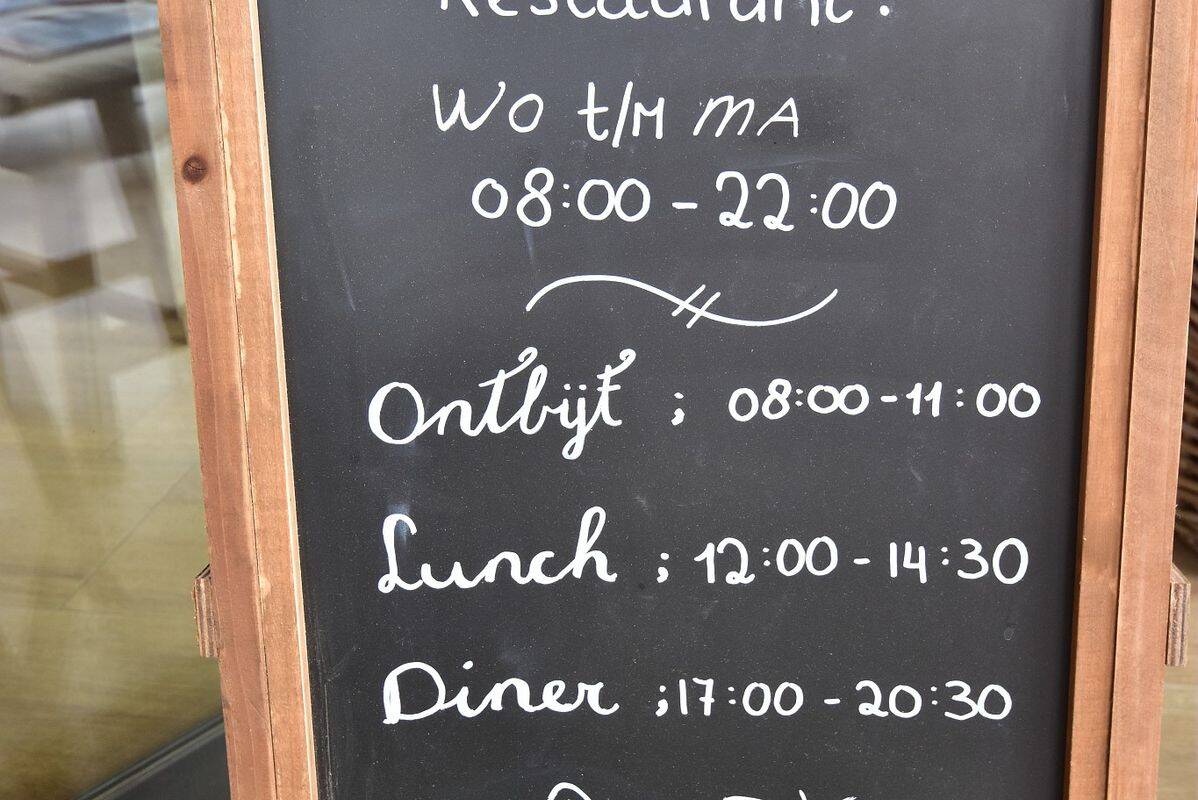 Restaurant:
WO t/M MA
08:00 - 22:00
Ontbijt ; 08:00 - 11:00
Lunch ; 12:00 - 14:30
Diner ; 17:00 - 20:30